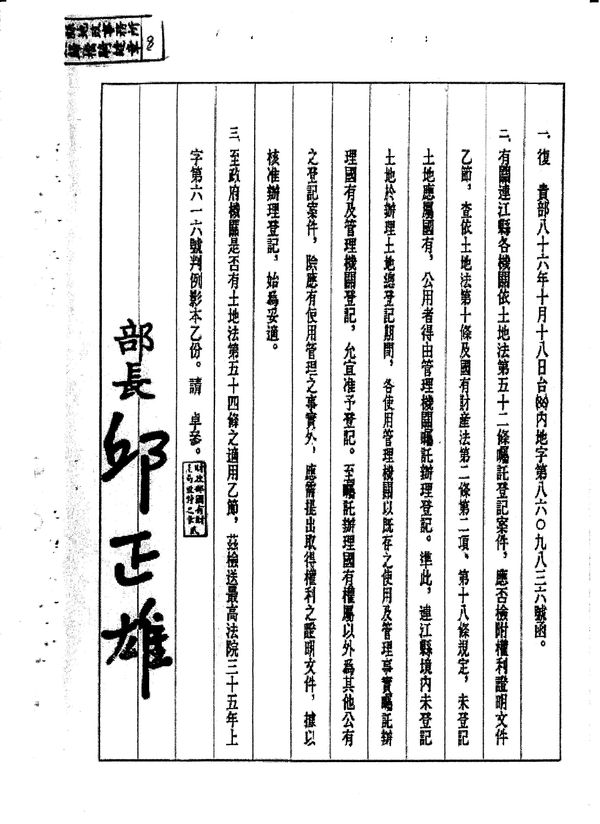 一、復　貴部八十六年十月十八日台(86)內地字第八六０九八三六號函。
二、有關連江縣各機關依土地法第五十二條囑託登記案件，應否檢附權利證明文件
乙節，查依土地法第十條及國有財產法第二條第二項、第十八條規定，未登記
土地應屬國有，公用者得由管理機關囑託辦理登記。準此，連江縣境內未登記
土地於辦理土地總登記期間，各使用管理機關以既存之使用及管理事實囑託辦
理國有及管理機關登記，允宜准予登記。至囑託辦理國有權屬以外為其他公有
之登記案件，除應有使用管理之事實外，應需提出取得權利之證明文件，據以
核准辦理登記，始為妥適。
三、至政府機關是否有土地法第五十四條之適用乙節，茲檢送最高法院三十五年上
字第六一六號判例影本乙份。請　卓參。
部長 邱正雄
8